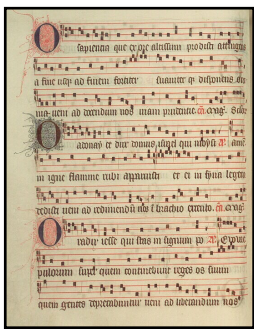 O sapientia que ex ore altissimi prodisti attingens
a fine usq ad finem fortiter suauiter q disponens om
nia ueni ad docendum nos uiam prudentie
O adonay et dux domus israel qui moysi
in igne flamme rubi apparuisti et ei in syna legem
dedisti ueni ad redimendū nos ī brachio extento
O radix iesse qui stas in signum po
pulorum super quem continebunt reges os suum
quem gentes deprecabuntur ueni ad liberandum nos